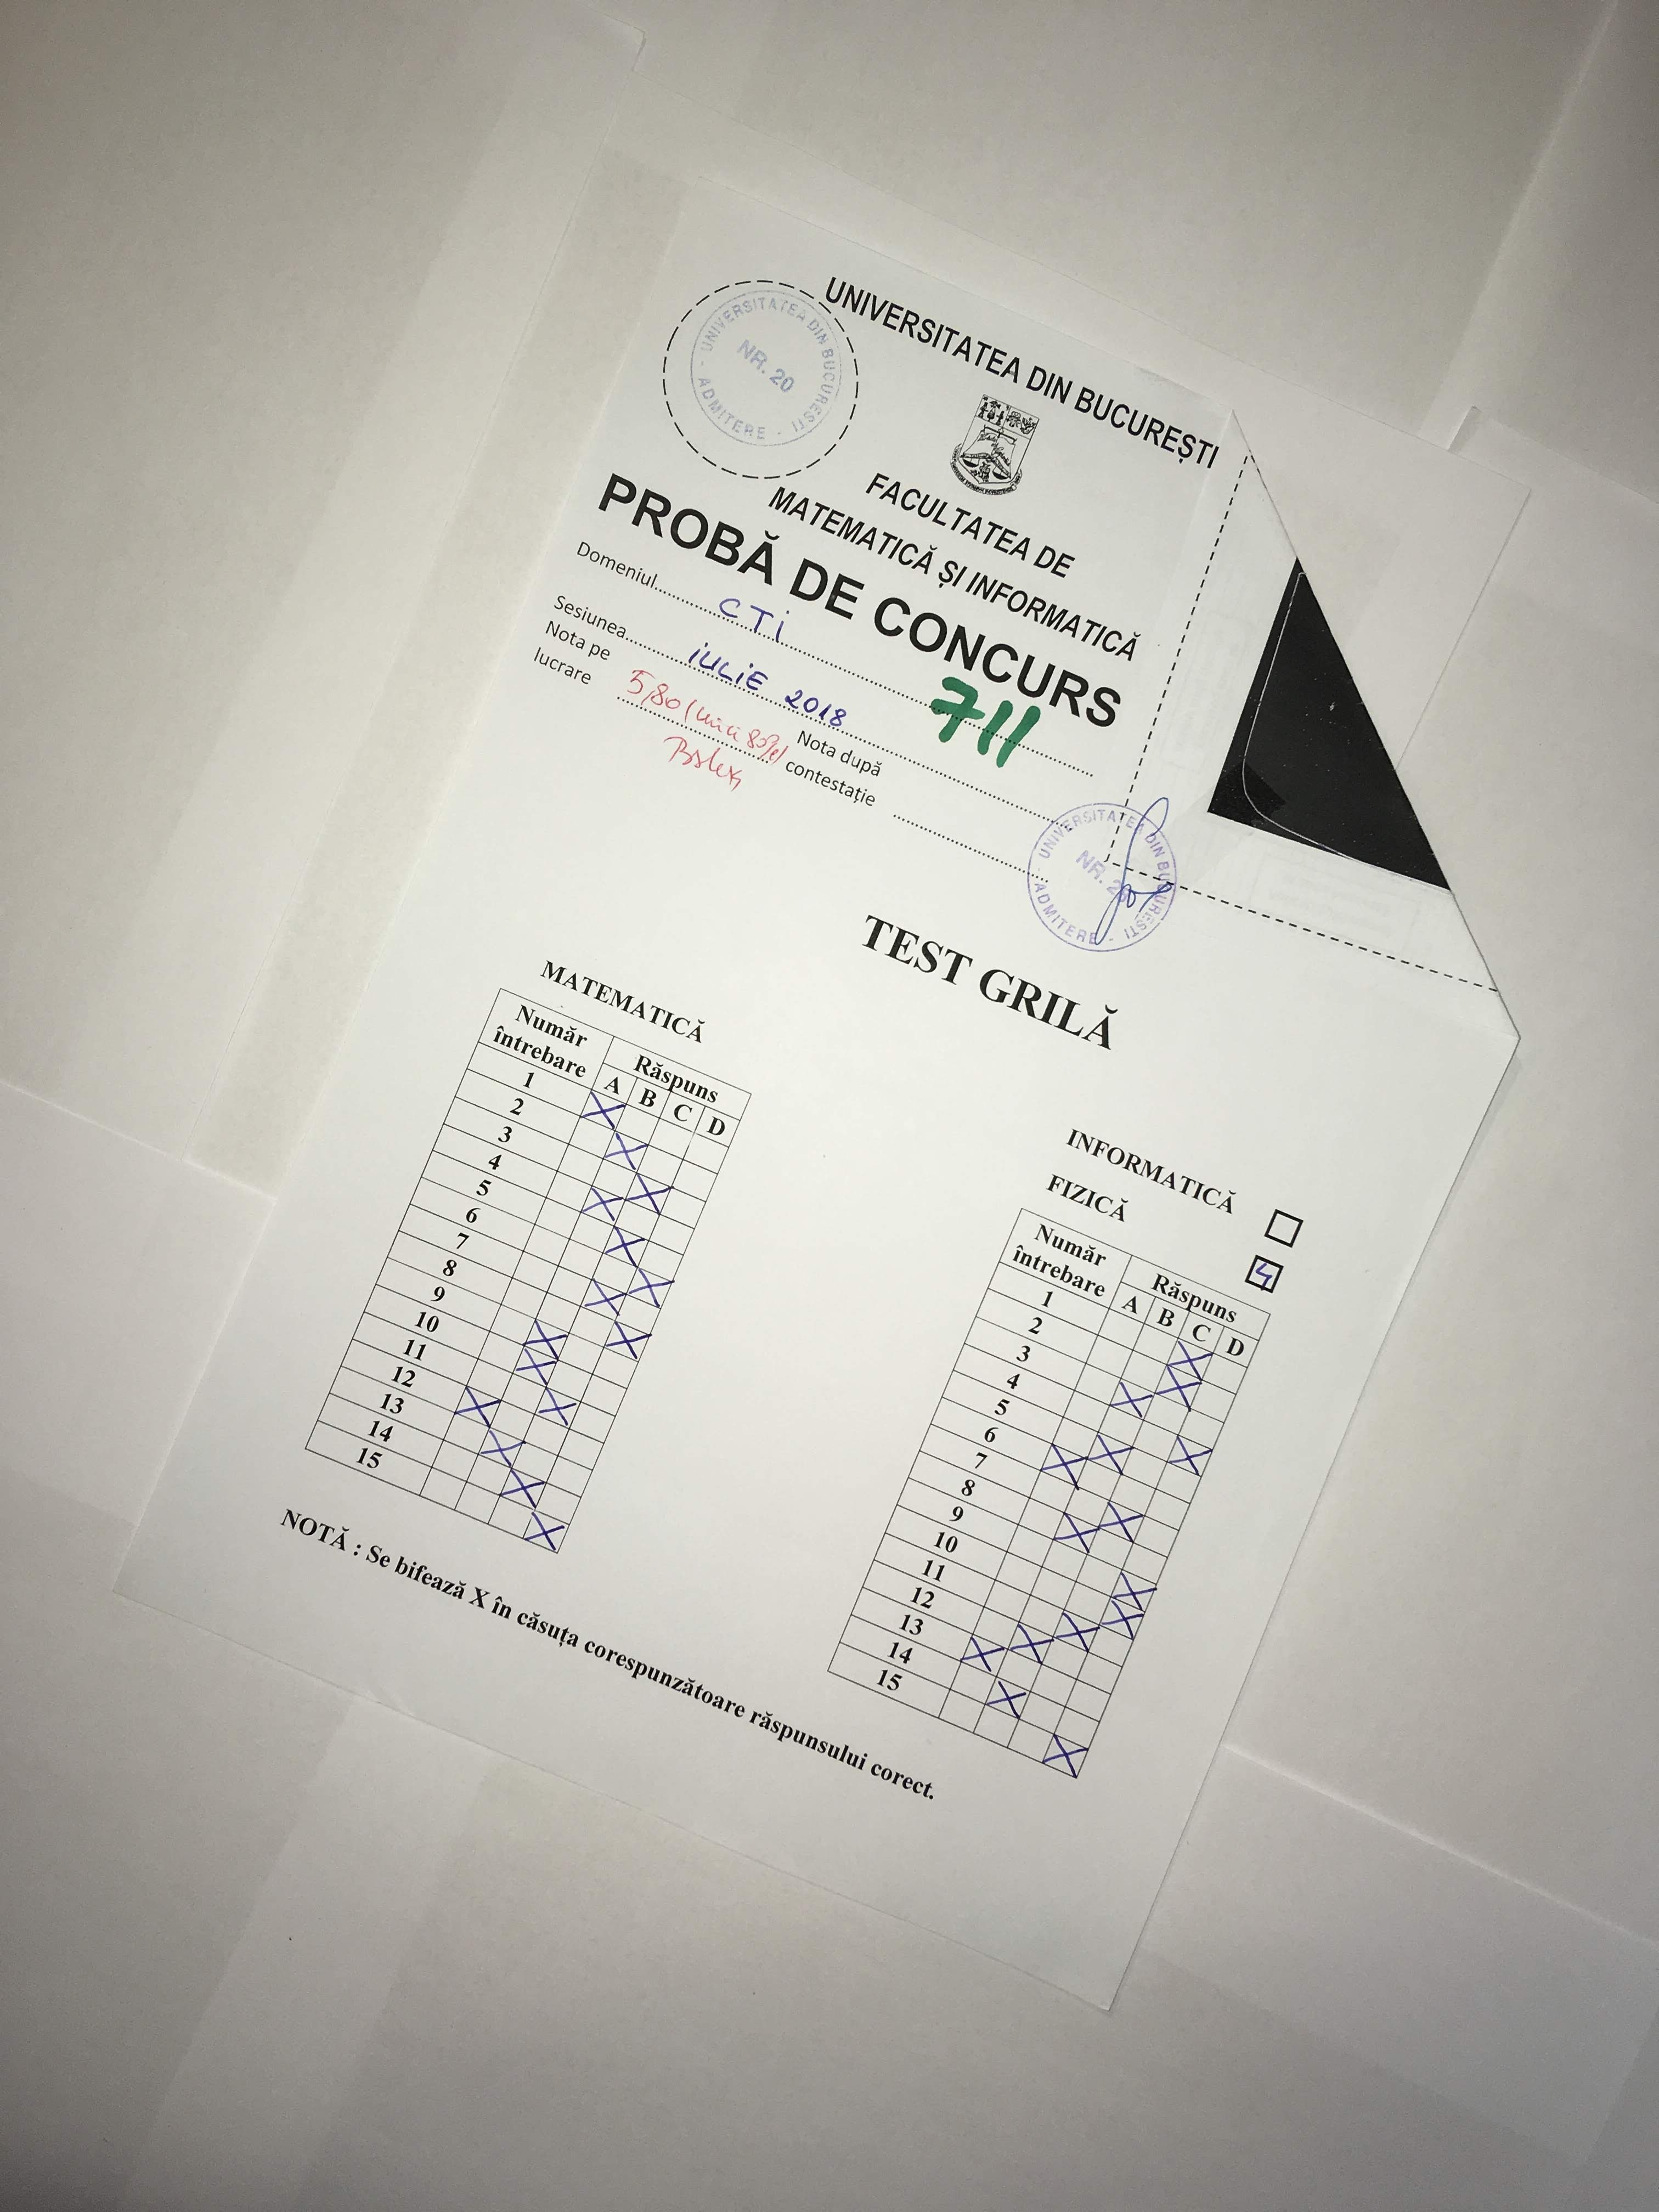 UNIVERSITATEA DIN BUCUREȘTI
UNIVERSITATEA DIN BUCUREȘTI - ADMITERE -
NR. 20
FACULTATEA DE
MATEMATICĂ ȘI INFORMATICĂ
PROBĂ DE CONCURS
Domeniul CTI
711
Sesiunea IULIE 2018
Nota pe
lucrare 5,80
Nota după
contestație
UNIVERSITATEA DIN BUCUREȘTI - ADMITERE -
NR. 20
TEST GRILĂ
MATEMATICĂ
Număr
întrebare
Răspuns
A B C D
1 X
2 X
3 X
4 X
5 X
6 X
7 X
8 X
9 X
10 X
11 X
12 X
13 X
14 X
15 X
INFORMATICĂ
FIZICĂ
Număr
întrebare
Răspuns
A B C D
1 X
2 X
3 X
4 X
5 X
6 X
7 X
8 X
9 X
10 X
11 X
12 X
13 X
14 X
15 X
NOTĂ : Se bifează X în căsuța corespunzătoare răspunsului corect.